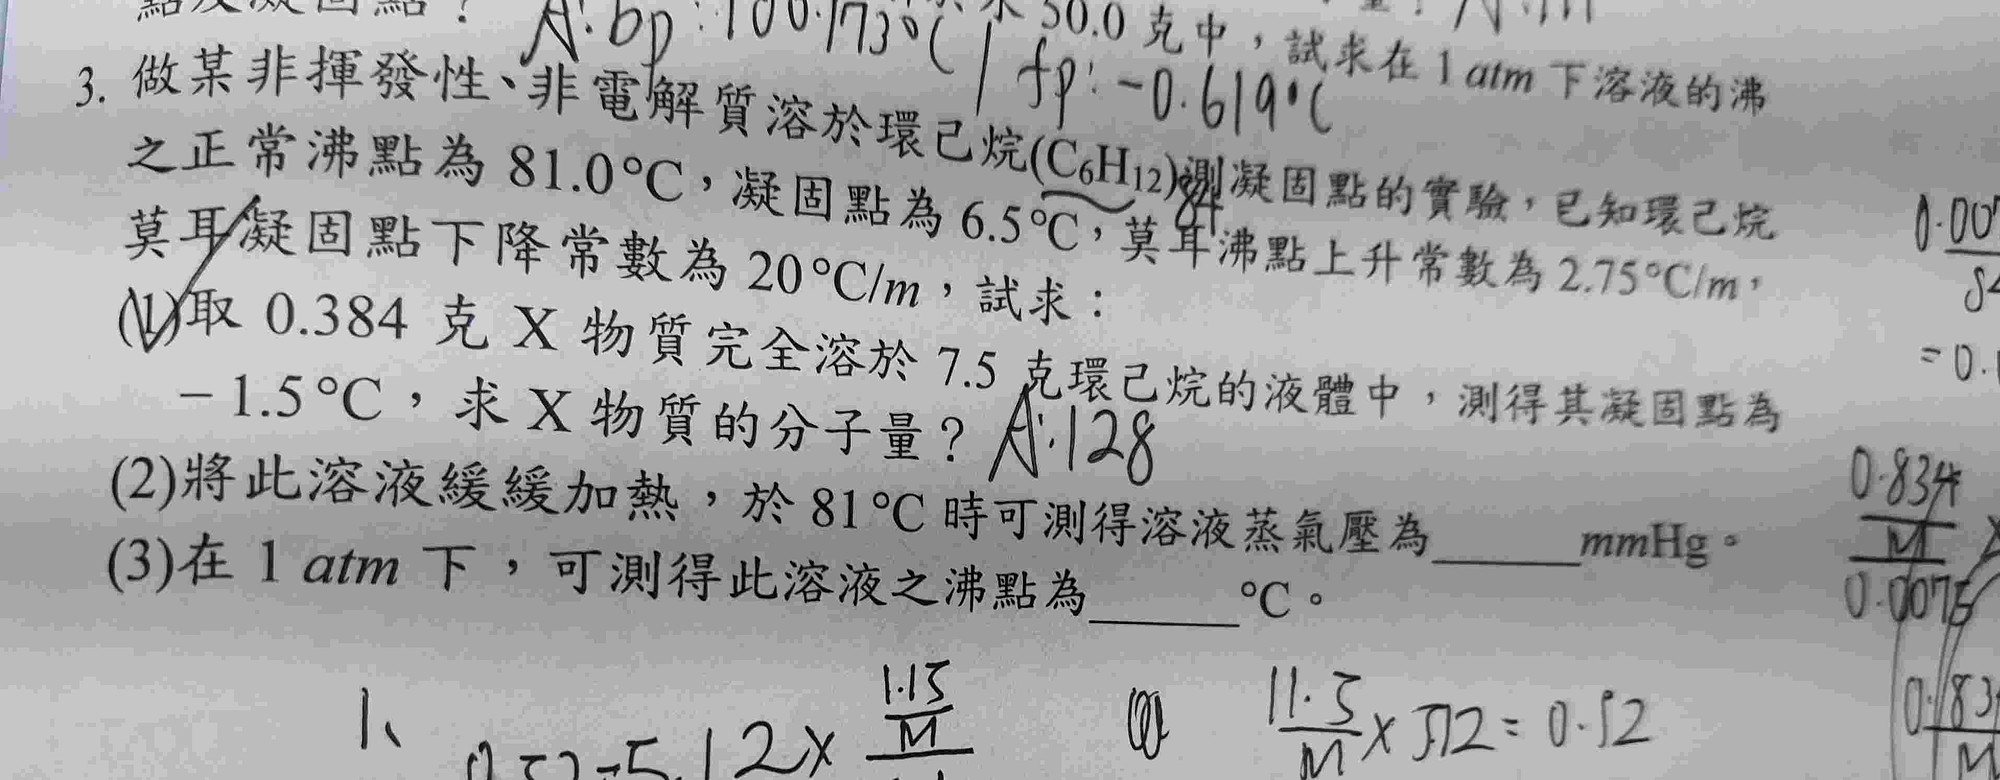 點及凝固點？
A:bp:100.173℃ / fp:-0.619℃
水 50.0 克中，試求在 1 atm 下溶液的沸
3. 做某非揮發性、非電解質溶於環己烷(C₆H₁₂)測凝固點的實驗，已知環己烷
84
之正常沸點為 81.0℃，凝固點為 6.5℃，莫耳沸點上升常數為 2.75℃/m，
莫耳凝固點下降常數為 20℃/m，試求：
(1)取 0.384 克 X 物質完全溶於 7.5 克環己烷的液體中，測得其凝固點為
－1.5℃，求 X 物質的分子量？ A:128
(2)將此溶液緩緩加熱，於 81℃ 時可測得溶液蒸氣壓為_____mmHg。
(3)在 1 atm 下，可測得此溶液之沸點為_____℃。
0.834
M
0.0075
1、
1.15
M
5.12×
11.5/M × 5.12 = 0.52